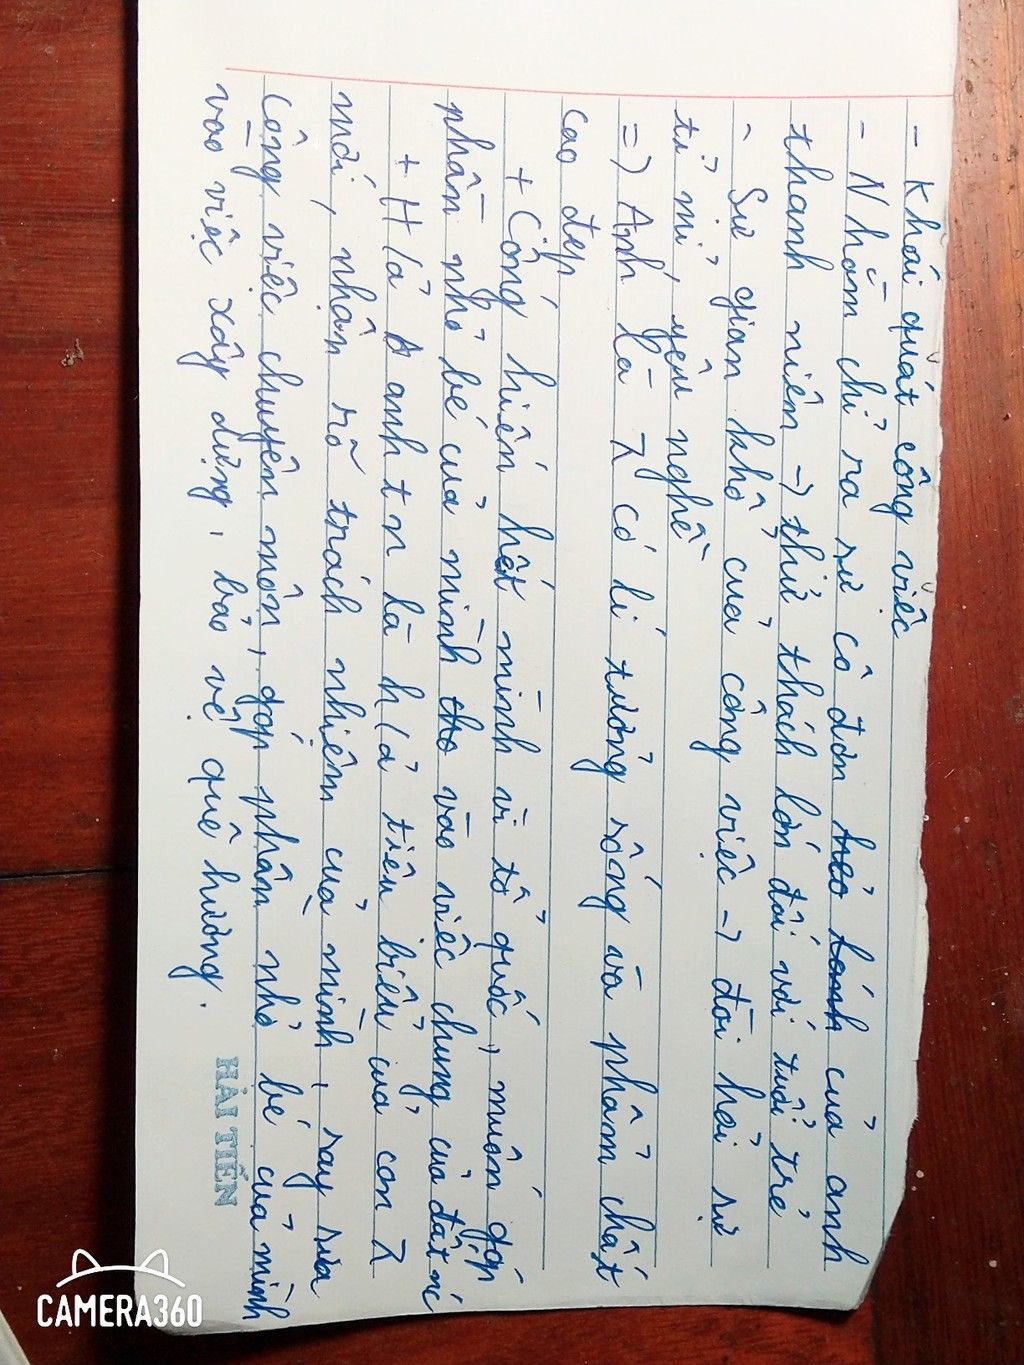 - Khái quát công việc
- Nhằm chỉ ra sự cô đơn của anh
thanh niên -> thử thách lớn đối với tuổi trẻ
- Sự gian khổ của công việc -> đòi hỏi sự
tỉ mỉ, yêu nghề
=> Anh là ng có lí tưởng sống và phẩm chất
cao đẹp
+ Cống hiến hết mình vì tổ quốc, muốn góp
phần nhỏ bé của mình vào việc chung của đất nc
+ H/ả anh tn là h/ả tiêu biểu của con ng
mới, nhận rõ trách nhiệm của mình, say sưa
công việc chuyên môn, góp phần nhỏ bé của mình
vào việc xây dựng, bảo vệ quê hương.
HẢI TIẾN
CAMERA360